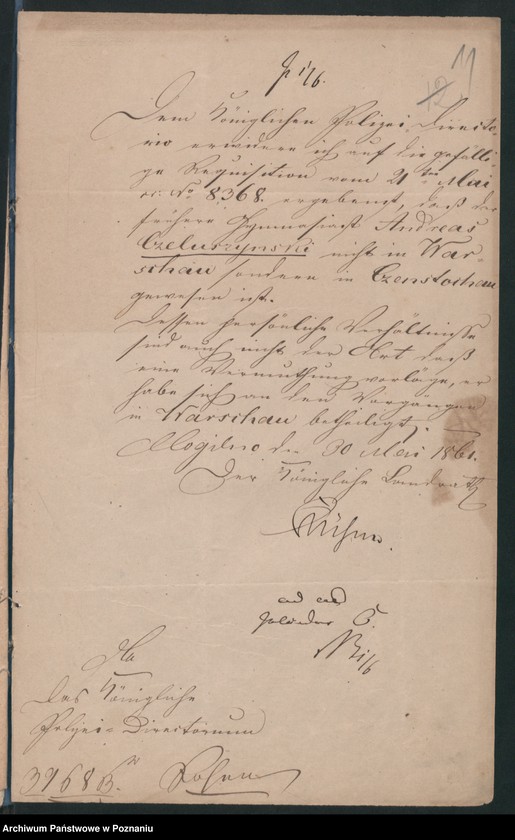 11
12
Dem Königlichen Polizei-Directo-
rio erwidere ich auf die gefälli-
ge Requisition vom 21ten Mai
c. No 8368. ergebenst, daß der
frühere Gymnasiast Andreas
Czeluszynski nicht in War-
schau sondern in Czenstochau
gewesen ist.
Dessen persönliche Verhältnisse
sind auch nicht der Art daß
eine Vermuthung vorläge, er
habe sich an den Vorgängen
in Warschau betheiligt.
Mogilno den 30 Mai 1861.
Der Königliche Landrath
ad acta
An
Das Königliche
Polizei-Directorium
3968 Posen
Archiwum Państwowe w Poznaniu